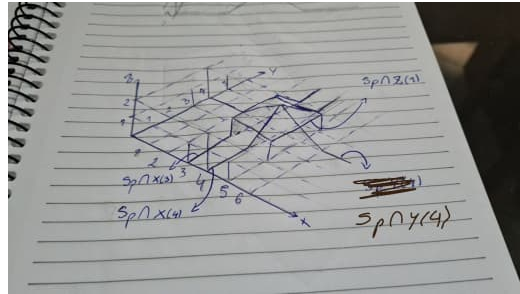 Z
Y
2
1
3
4
1
2
Sp∩Z(1)
2
3
4
5
6
X
Sp∩X(3)
Sp∩X(4)
Sp∩Y(4)